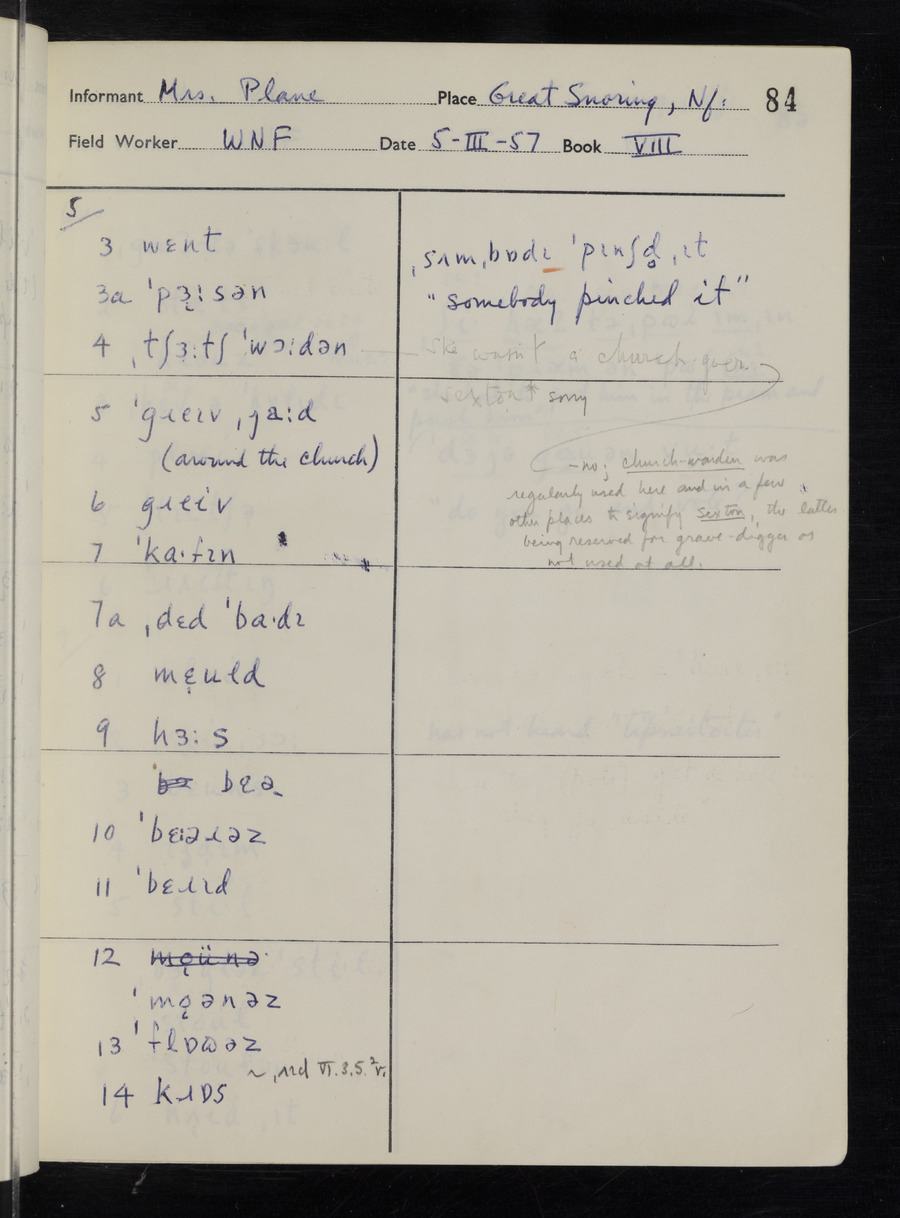 Informant Mrs. Plane Place Great Snoring, Nf. 84
Field Worker WNF Date 5-III-57 Book VIII
5
3 wɛnt
3a ˈpɜ̣ːsən
4 ˌtʃɜːtʃ ˈwɔːdən
5 ˈgɹɛɪv ˌjaːd
(around the church)
6 gɹɛiv
7 ˈkaˑfɪn
7a ˌdɛd ˈbaˑdɪ
8 mɛ̣uld
9 hɜːs
bɛə
10 ˈbɛːəɹəz
11 ˈbɛɹɪd
12 mo̜ünə
ˈmo̜ənəz
13 ˈflɒʊəz
~ ˌɹɪd VI.3.5.²r.
14 kɹɒs
ˌsʌmˌbɒdɪ ˈpɪnʃd̥ ˌɪt
"somebody pinched it"
She wasn't a church goer
sexton* sorry
– no; church-warden was
regularly used here and in a few
other places to signify sexton, the latter
being reserved for grave-digger or
not used at all.